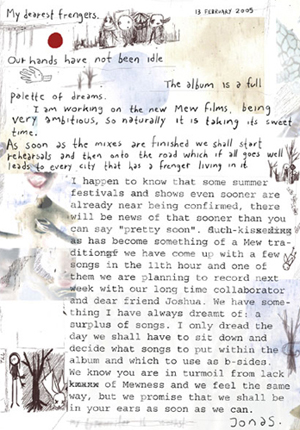 My dearest frengers.
13 FEBRUARY 2005
Our hands have not been idle
The album is a full
palette of dreams.
I am working on the new Mew films, being
very ambitious, so naturally it is taking its sweet
time.
As soon as the mixes are finished we shall start
rehearsals and then onto the road which if all goes well
leads to every city that has a frenger living in it
I happen to know that some summer
festivals and shows even sooner are
already near being confirmed, there
will be news of that sooner than you
can say "pretty soon".
as has become something of a Mew tra-
we have come up with a few
songs in the 11th hour and one of
them we are planning to record next
week with our long time collaborator
and dear friend Joshua. We have some-
thing I have always dreamt of: a
surplus of songs. I only dread the
day we shall have to sit down and
decide what songs to put within the
album and which to use as b-sides.
We know you are in turmoil from lack
of Mewness and we feel the same
way, but we promise that we shall be
in your ears as soon as we can.
Jonas.